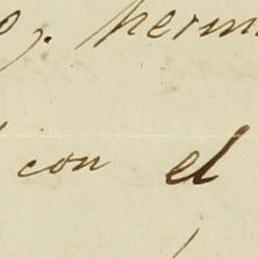 herm
con el